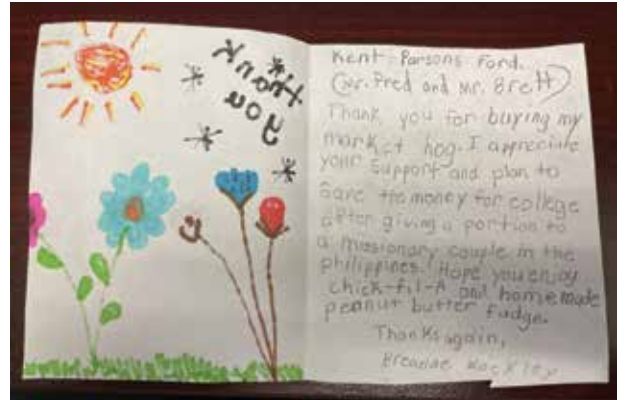 Thank
you
Kent Parsons Ford.
(Mr. Fred and Mr. Brett)
Thank you for buying my
market hog. I appreciate
your support and plan to
save the money for college
after giving a portion to
a missionary couple in the
philippines! Hope you enjoy
chick-fil-A and homemade
peanut butter fudge.
Thanks again,